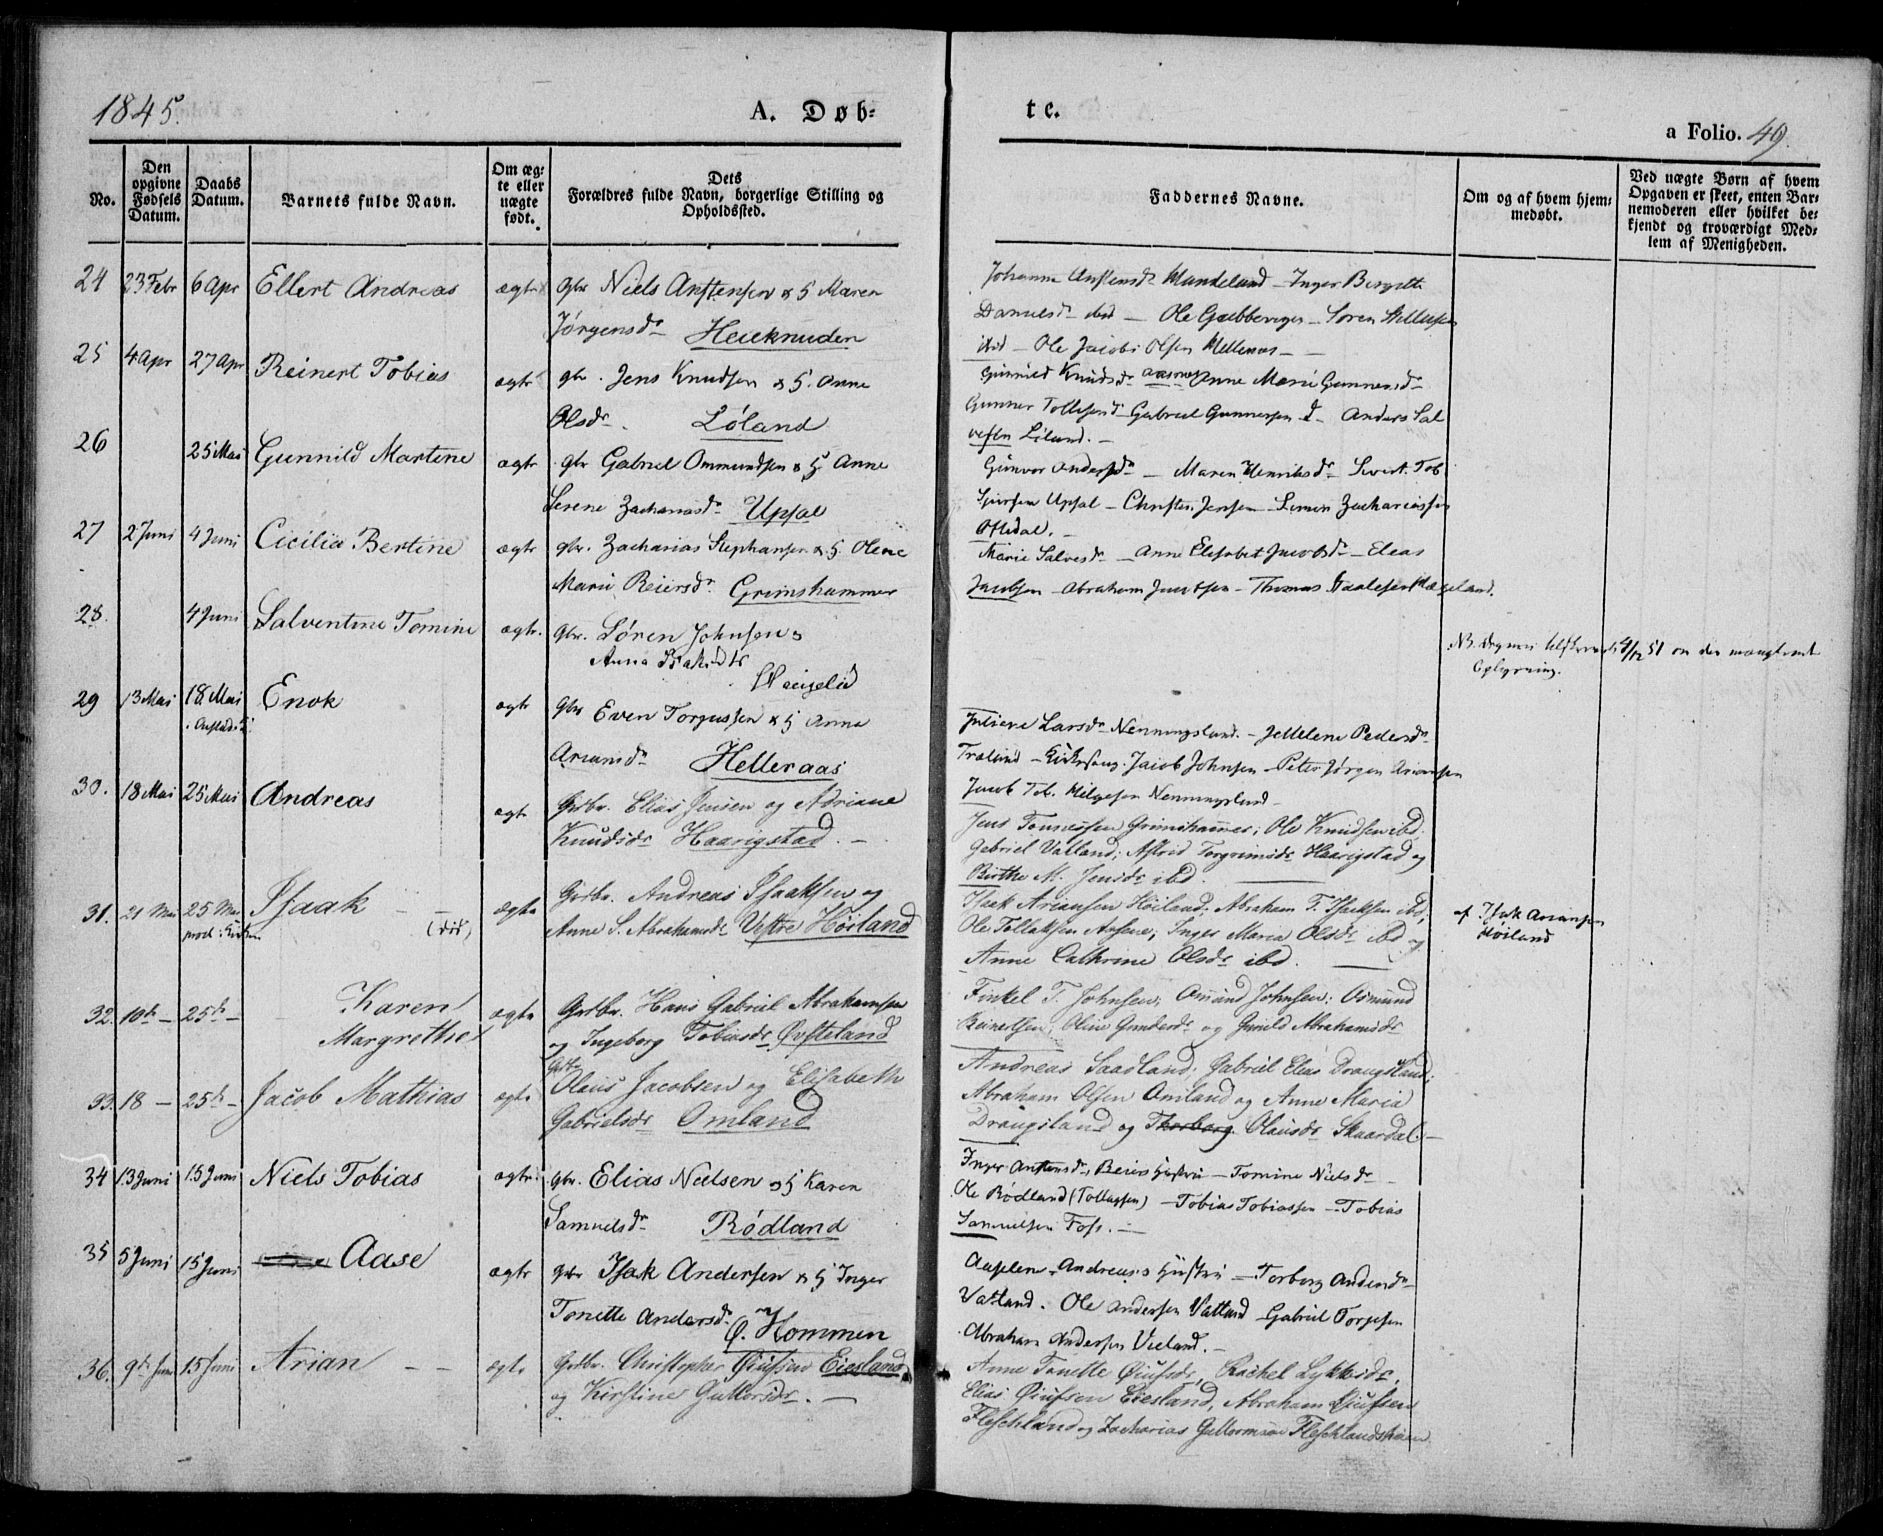 1845.
A. Døb-
te.
a Folio. 49.
No.
Den opgivne Fødsels Datum.
Daabs Datum.
Barnets fulde Navn.
Om ægte eller uægte født.
Dets Forældres fulde Navn, borgerlige Stilling og Opholdssted.
Faddernes Navne.
Om og af hvem hjemmedøbt.
Ved uægte Børn af hvem Opgaven er skeet, enten Barnemoderen eller hvilket bekjendt og troværdigt Medlem af Menigheden.
24 23 Febr 6 Apr Ellert Andreas ægte gbr Niels Anstensen & Maren
Jørgensdr Heieknuden
Danielsdr ibd — Ole Gubberiger - Søren
ibid - Ole Jacobs Olsen
25 4 Apr 27 Apr Reinert Tobias ægte gbr. Jens Knudsen & Anne
Olsdr. Løland
Gunnild Knudsdr Anne Marie Gunnersdr
Gunner Gabriel Gunnersen Anders Sal
Løland.
26 25 Mai Gunnild Martine ægte gbr Gabriel Ommundsen & Anne
Serene Zachariasdr Upsal
Gunvor Andersdr — Maren Henriksdr — Sivert Tob
Upsal — Christen Jensen — Simon Zachariassen
27 2 Juni 4 Juni Cicilia Bertine ægte gbr. Zacharias Stephansen & Olene
Marie Reiersdr Grimshammer
Marie Salvesdr — Anne Elisabet Jacobsdr — Elias
Jacobsen — Abraham Jacobsen — Thomas
28. 4 Juni Salventine Tomine ægte. gbr. Søren Johnsen &
Anna
NB. 4/12 51 om den manglende
Oplysning.
29 13 Mai 18 Mai Enok ægte gbr Even Torgussen & Anna
Ariansdr Helleraas
Juliane Larsdr Nenningsland. — Helene Pedersdr
Kirkesang. Jacob Johnsen — Peter Jørgen Ariansen
Jacob Tob. Helgesen Nenningsland —
30. 18 Mai 25 Mai Andreas ægte Grdbr. Elias Jensen og Adriane
Knudsdr Haarigstad. —
Jens Tønnessen Grimshammer; Ole Knudsen ibd.
Gabriel Vatland; Astrid Torgrimsdr Haarigstad og
Birthe M. Jensdr ibd.
31. 21 Mai 25 Mai Isaak — (død) ægte Grdbr. Andreas Isaaksen og
Anne S. Abrahamsdr Vestre Høiland
Isak Ariansen Høiland; Abraham T. Isaksen ibd;
Ole Tollaksen; Inger Maria Olsdr ibd og
Anne Cathrine Olsdr ibd.
af Isak Ariansen
Høiland
32. 10de — 25de — Karen
Margrethe ægte Grdbr. Hans Gabriel Abrahamsen
og Ingeborg Tobiasdr Øvsteland
Finkel T. Johnsen; Omund Johnsen; Osmund
Reinertsen; Oline Gundersdr og Gunild Abrahamsdr
33. 18 — 25de — Jacob Mathias ægte Olaus Jacobsen og Elisabeth
Gabrielsdr Omland
Andreas Saadland; Gabriel Elias Draugsland;
Abraham Olsen Omland og Anne Maria
Draugsland og Thorborg Olausdr Skaardal —
34 13 Juni 15 Juni Niels Tobias ægte gbr. Elias Nielsen & Karen
Samuelsdr Rødland
Inger Anstensdr, Reiers Hustru — Tomine Nielsdr —
Ole Rødland (Tollagsen) — Tobias Tobiassen — Tobias
Samuelsen Foss. —
35 5 Juni 15 Juni Aase ægte gbr Isak Andersen & Inger
Tonette Andersdr Ø. Hommen
Andreas's Hustru — Torborg Andersdr
Vatland. Ole Andersen Vatland — Gabriel Torgesen
Abraham Andersen Vieland. —
36. 9de Juni 15 Juni Arian — — ægte Grdbr. Christopher Øiufsen Eiesland
og Kirstine Guttormsdr. —
Anne Tonette Øiufsdr, Rachel Lykkesdr,
Elias Øiufsen Eiesland, Abraham Øiufsen
Fleschland og Zacharias Guttormsen